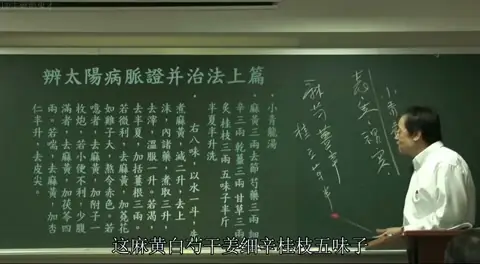 辨太陽病脈證并治法上篇
小青龍湯
麻黃三兩去節 芍藥三兩 細
辛三兩 乾薑三兩 甘草三兩
炙 桂枝三兩 五味子半斤
半夏半升洗
右八味,以水一斗,先
煮麻黃,減二升,去上
沫,內諸藥,煮取三升,
去滓,溫服一升。若渴,
去半夏,加括蔞根三兩。
若微利,去麻黃,加蕘花
如雞子大,熬令赤色。若
噎者,去麻黃,加附子一
枚炮。若小便不利,少腹
滿者,去麻黃,加茯苓四
兩。若喘,去麻黃,加杏
仁半升,去皮尖。
小青
麻芍薑辛
桂
这麻黄白芍干姜细辛桂枝五味子